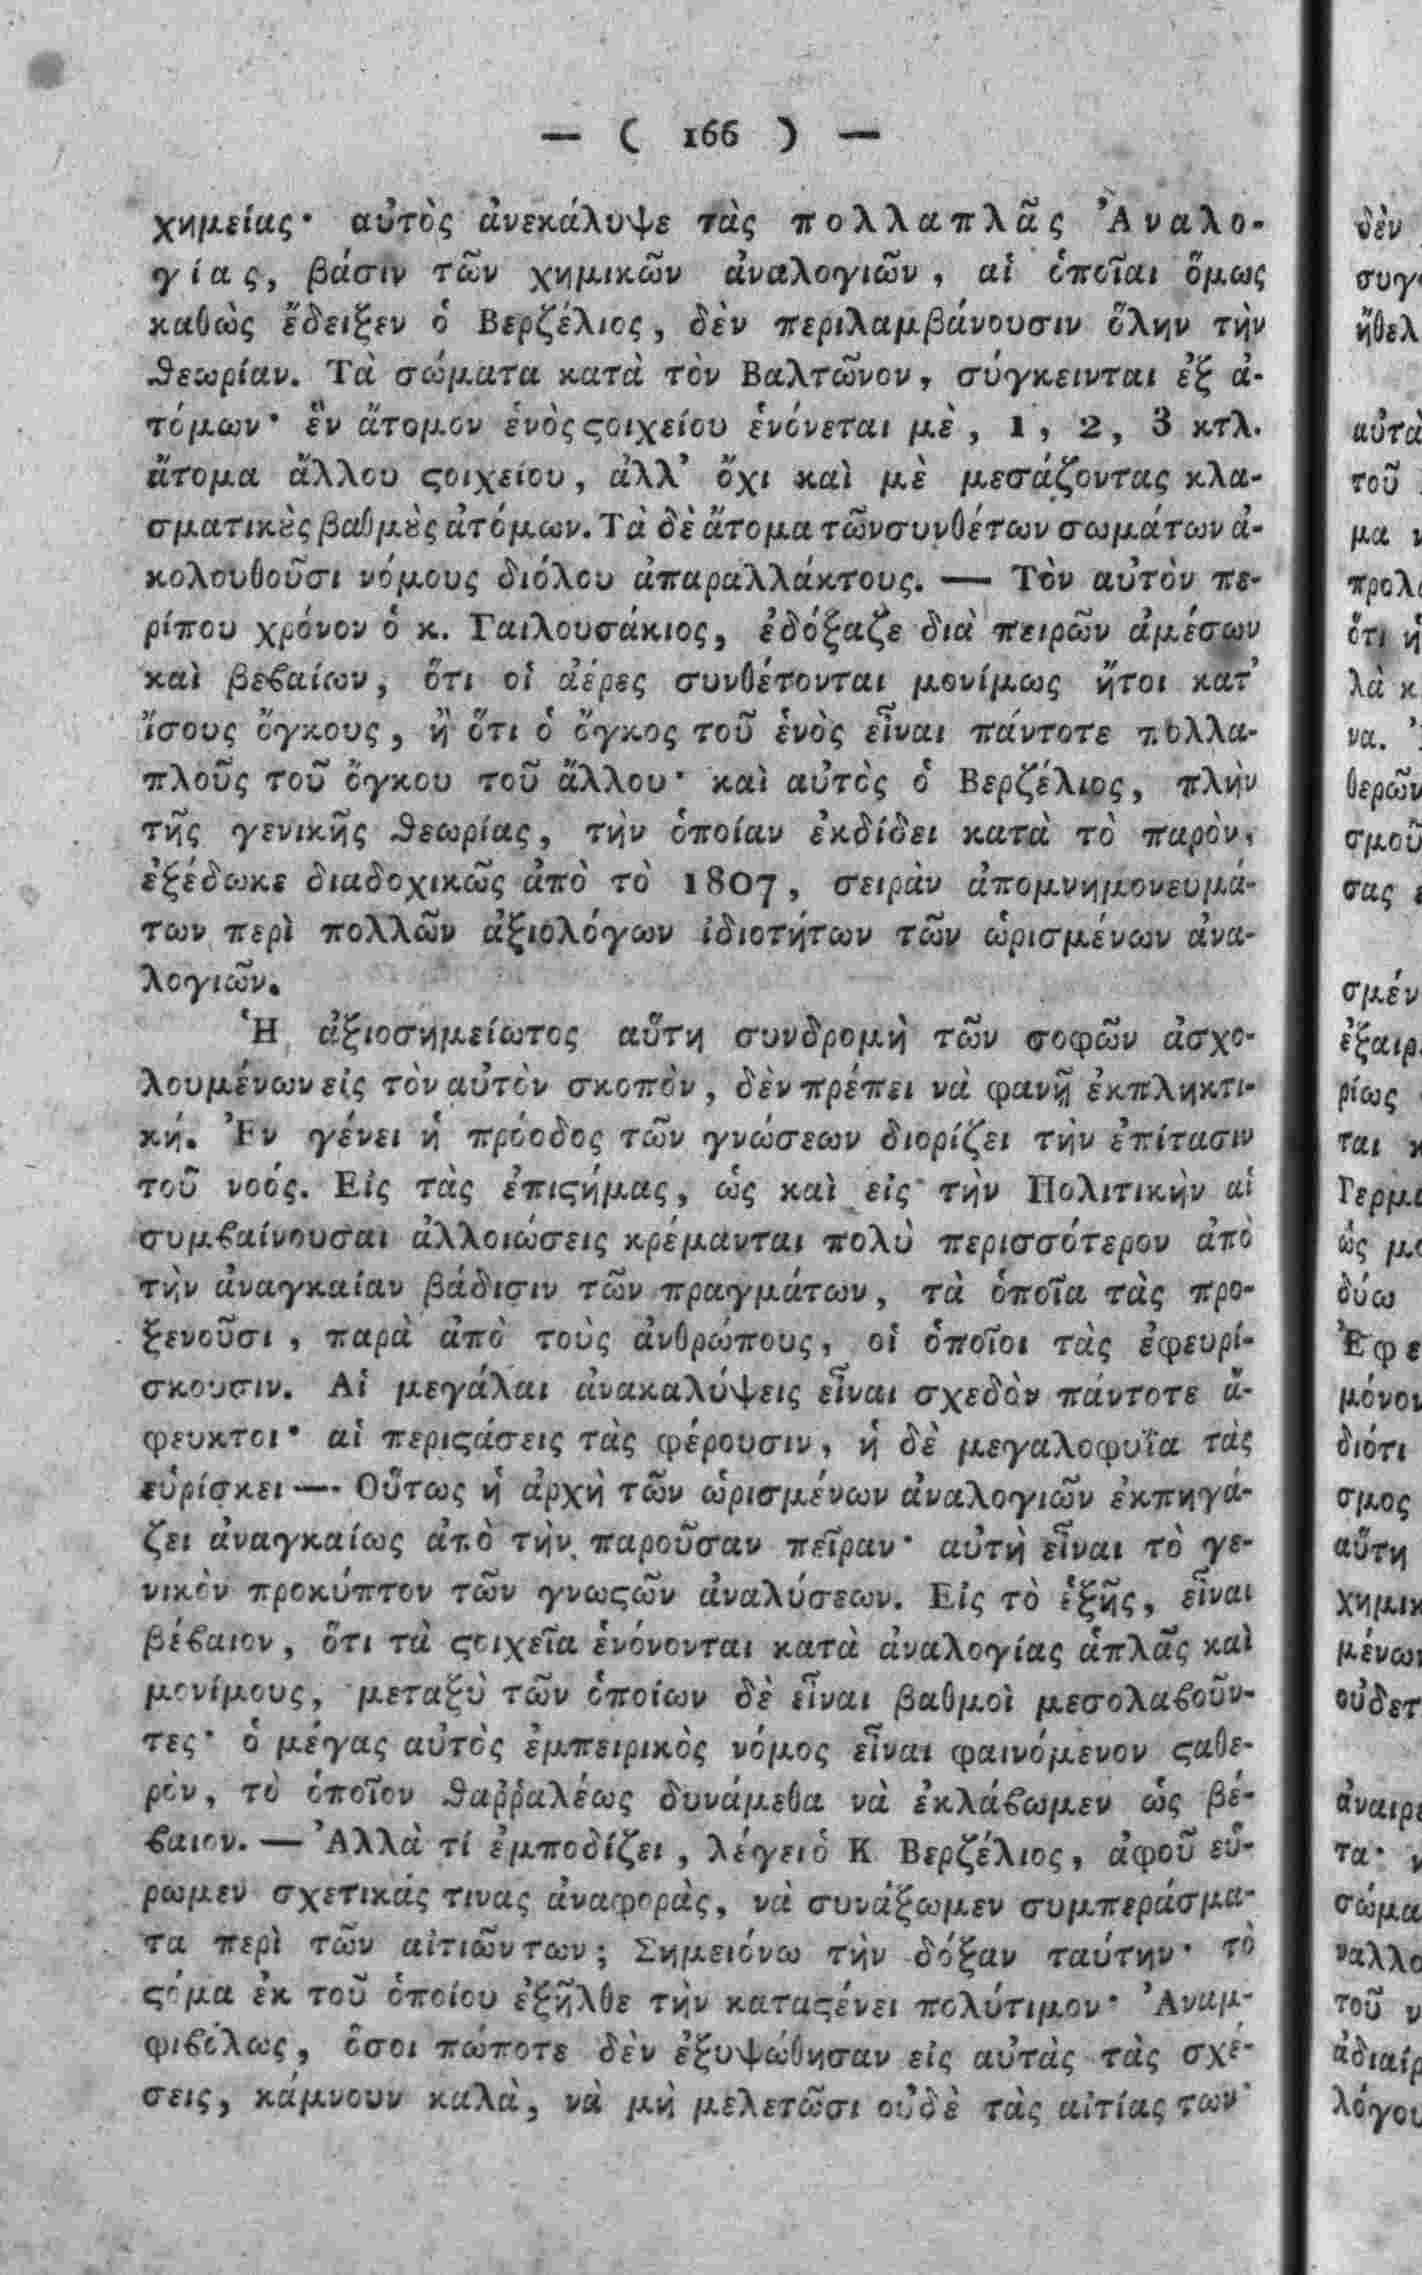 — ( 166 ) —
χημείας· αὐτὸς ἀνεκάλυψε τὰς πολλαπλᾶς Ἀναλο-
γίας, βάσιν τῶν χημικῶν ἀναλογιῶν, αἱ ὁποῖαι ὅμως
καθὼς ἔδειξεν ὁ Βερζέλιος, δὲν περιλαμβάνουσιν ὅλην τὴν
ϑεωρίαν. Τὰ σώματα κατὰ τὸν Βαλτῶνον, σύγκεινται ἐξ ἀ-
τόμων· ἓν ἄτομον ἑνὸς ϛοιχείου ἑνόνεται μὲ, 1, 2, 3 κτλ.
ἄτομα ἄλλου ϛοιχείου, ἀλλ' ὄχι καὶ μὲ μεσάζοντας κλα-
σματικȣ̀ς βαθμȣ̀ς ἀτόμων. Τὰ δὲ ἄτομα τῶν συνθέτων σωμάτων ἀ-
κολουθοῦσι νόμους διόλου ἀπαραλλάκτους. — Τὸν αὐτὸν πε-
ρίπου χρόνον ὁ κ. Γαιλουσάκιος, ἐδόξαζε διὰ πειρῶν ἀμέσων
καὶ βεϐαίων, ὅτι οἱ ἀέρες συνθέτονται μονίμως ἤτοι κατ'
ἴσους ὄγκους, ἢ ὅτι ὁ ὄγκος τοῦ ἑνὸς εἶναι πάντοτε πολλα-
πλοῦς τοῦ ὄγκου τοῦ ἄλλου· καὶ αὐτὸς ὁ Βερζέλιος, πλὴν
τῆς γενικῆς ϑεωρίας, τὴν ὁποίαν ἐκδίδει κατὰ τὸ παρὸν,
ἐξέδωκε διαδοχικῶς ἀπὸ τὸ 1807, σειρὰν ἀπομνημονευμά-
των περὶ πολλῶν ἀξιολόγων ἰδιοτήτων τῶν ὡρισμένων ἀνα-
λογιῶν.
Ἡ ἀξιοσημείωτος αὕτη συνδρομὴ τῶν σοφῶν ἀσχο-
λουμένων εἰς τὸν αὐτὸν σκοπὸν, δὲν πρέπει νὰ φανῇ ἐκπληκτι-
κή. Ἐν γένει ἡ πρόοδος τῶν γνώσεων διορίζει τὴν ἐπίτασιν
τοῦ νοός. Εἰς τὰς ἐπιϛήμας, ὡς καὶ εἰς τὴν Πολιτικὴν αἱ
συμϐαίνουσαι ἀλλοιώσεις κρέμανται πολὺ περισσότερον ἀπὸ
τὴν ἀναγκαίαν βάδισιν τῶν πραγμάτων, τὰ ὁποῖα τὰς προ-
ξενοῦσι, παρὰ ἀπὸ τοὺς ἀνθρώπους, οἱ ὁποῖοι τὰς ἐφευρί-
σκουσιν. Αἱ μεγάλαι ἀνακαλύψεις εἶναι σχεδὸν πάντοτε ἄ-
φευκτοι· αἱ περιϛάσεις τὰς φέρουσιν, ἡ δὲ μεγαλοφυΐα τὰς
εὑρίσκει — Οὕτως ἡ ἀρχὴ τῶν ὡρισμένων ἀναλογιῶν ἐκπηγά-
ζει ἀναγκαίως ἀπὸ τὴν παροῦσαν πεῖραν· αὐτὴ εἶναι τὸ γε-
νικὸν προκύπτον τῶν γνωϛῶν ἀναλύσεων. Εἰς τὸ ἑξῆς, εἶναι
βέϐαιον, ὅτι τὰ ϛοιχεῖα ἑνόνονται κατὰ ἀναλογίας ἁπλᾶς καὶ
μονίμους, μεταξὺ τῶν ὁποίων δὲ εἶναι βαθμοὶ μεσολαϐοῦν-
τες· ὁ μέγας αὐτὸς ἐμπειρικὸς νόμος εἶναι φαινόμενον ϛαθε-
ρὸν, τὸ ὁποῖον ϑαῤῥαλέως δυνάμεθα νὰ ἐκλάϐωμεν ὡς βέ-
ϐαιον. — Ἀλλὰ τί ἐμποδίζει, λέγει ὁ Κ Βερζέλιος, ἀφοῦ εὕ-
ρωμεν σχετικάς τινας ἀναφορὰς, νὰ συνάξωμεν συμπεράσμα-
τα περὶ τῶν αἰτιῶν των; Σημειόνω τὴν δόξαν ταύτην· τὸ
ϛόμα ἐκ τοῦ ὁποίου ἐξῆλθε τὴν καταϛένει πολύτιμον· Ἀναμ-
φιϐόλως, ὅσοι πώποτε δὲν ἐξυψώθησαν εἰς αὐτὰς τὰς σχέ-
σεις, κάμνουν καλὰ, νὰ μὴ μελετῶσι οὐδὲ τὰς αἰτίας των·